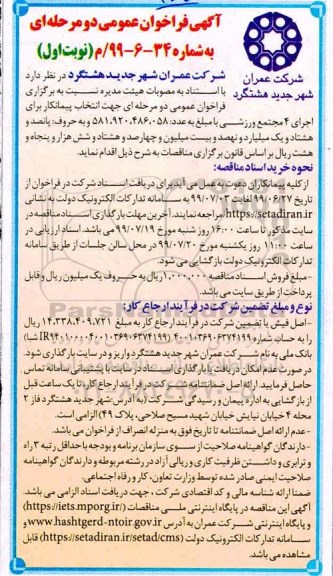 آگهی فراخوان عمومی دو مرحله‌ای
به شماره ۳۴-۶-۹۹/م (نوبت اول)
شرکت عمران
شهر جدید هشتگرد
شرکت عمران شهر جدید هشتگرد در نظر دارد
با استناد به مصوبات هیئت مدیره نسبت به برگزاری
فراخوان عمومی دو مرحله ای جهت انتخاب پیمانکار برای
اجرای ۴ مجتمع ورزشی با مبلغ به عدد: ۵۸۱.۹۲۰.۴۸۶.۰۵۸ و به حروف: پانصد و
هشتاد و یک میلیارد و نهصد و بیست میلیون و چهارصد و هشتاد و شش هزار و پنجاه و
هشت ریال بر اساس قانون برگزاری مناقصات به شرح ذیل اقدام نماید.
نحوه خرید اسناد مناقصه:
از کلیه پیمانکاران دعوت به عمل می آید برای دریافت اسناد شرکت در فراخوان از
تاریخ ۹۹/۰۶/۲۷ لغایت ۹۹/۰۷/۰۲ به سامانه تدارکات الکترونیک دولت به نشانی
https://setadiran.ir مراجعه نمایند. آخرین مهلت بارگذاری اسناد مناقصه در
سایت مذکور تا ساعت ۱۶:۰۰ روز شنبه مورخ ۹۹/۰۷/۱۹ می باشد. اسناد ارزیابی در
ساعت ۱۱:۰۰ روز یکشنبه مورخ ۹۹/۰۷/۲۰ در محل سالن جلسات از طریق سامانه
تدارکات الکترونیک دولت باز می شود.
-مبلغ فروش اسناد مناقصه ۱,۰۰۰,۰۰۰ ریال به حروف یک میلیون ریال و قابل
پرداخت از طریق سایت می باشد.
نوع و مبلغ تضمین شرکت در فرآیند ارجاع کار:
-اصل فیش یا تضمین شرکت در فرآیند ارجاع کار به مبلغ ۱۴.۳۳۸.۴۰۹.۷۲۱ ریال
را به حساب شماره
بانک ملی به نام شرکت عمران شهر جدید هشتگرد واریز و در سایت بارگذاری شود.
در صورت عدم امکان دریافت یا بارگذاری اسناد در سایت با پشتیبانی سامانه تماس
حاصل فرمایید. ارائه اصل ضمانتنامه شرکت در فرآیند ارجاع کار تا یک ساعت قبل
از بازگشایی به اداره پیمان و رسیدگی شرکت به آدرس شهر جدید هشتگرد فاز ۲
محله ۴ خیابان نیایش خیابان شهید مسیح صلاحی، پلاک ۴۹) الزامی است.
-عدم ارائه اصل ضمانتنامه تا تاریخ فوق به منزله انصراف از فراخوان می باشد.
-دارندگان گواهینامه صلاحیت از سوی سازمان برنامه و بودجه با حداقل رتبه ۳ راه
و ترابری و داشتن ظرفیت کاری و ریالی آزاد در رشته مربوطه و دارندگان گواهینامه
صلاحیت ایمنی صادر شده توسط وزارت تعاون، کار و رفاه اجتماعی
ضمنا ارائه شناسه ملی و کد اقتصادی شرکت، جهت دریافت اسناد الزامی می باشد.
آگهی این مناقصه در پایگاه ملی مناقصات (https://iets.mporg.ir/)
و پایگاه اینترنتی شرکت عمران به آدرس www.hashtgerd-ntoir.gov.ir و
سامانه تدارکات الکترونیک دولت (https://setadiran.ir/setad/cms) قابل
مشاهده می باشد.